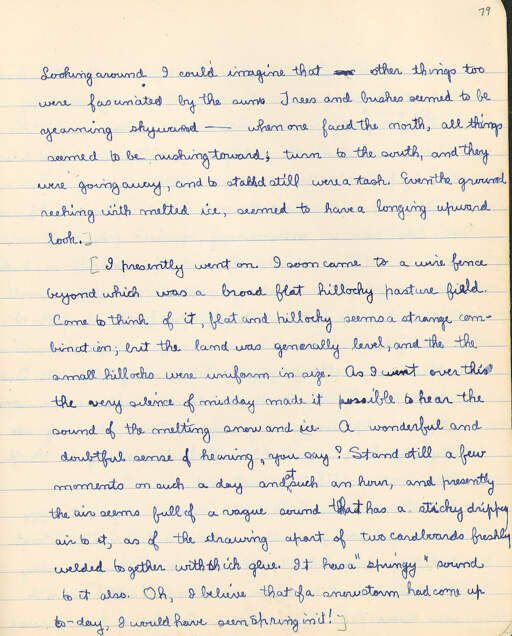 79
Looking around I could imagine that other things too
were fascinated by the sun. Trees and bushes seemed to be
yearning skyward — when one faced the north, all things
seemed to be rushing toward; turn to the south, and they
were going away, and to stand still were a task. Even the ground
reeking with melted ice, seemed to have a longing upward
look.]
[I presently went on. I soon came to a wire fence
beyond which was a broad flat hillocky pasture field.
Come to think of it, flat and hillocky seems a strange com-
bination; but the land was generally level, and the the
small hillocks were uniform in size. As I went over this
the very silence of midday made it possible to hear the
sound of the melting snow and ice A wonderful and
doubtful sense of hearing, you say? Stand still a few
moments on such a day and at such an hour, and presently
the air seems full of a vague sound that has a stichy drippy
air to it, as of the drawing apart of two cardboards freshly
welded together with thick glue. It has a "springy" sound
to it also. Oh, I believe that if a snowstorm had come up
to-day, I would have seen Spring in it!]